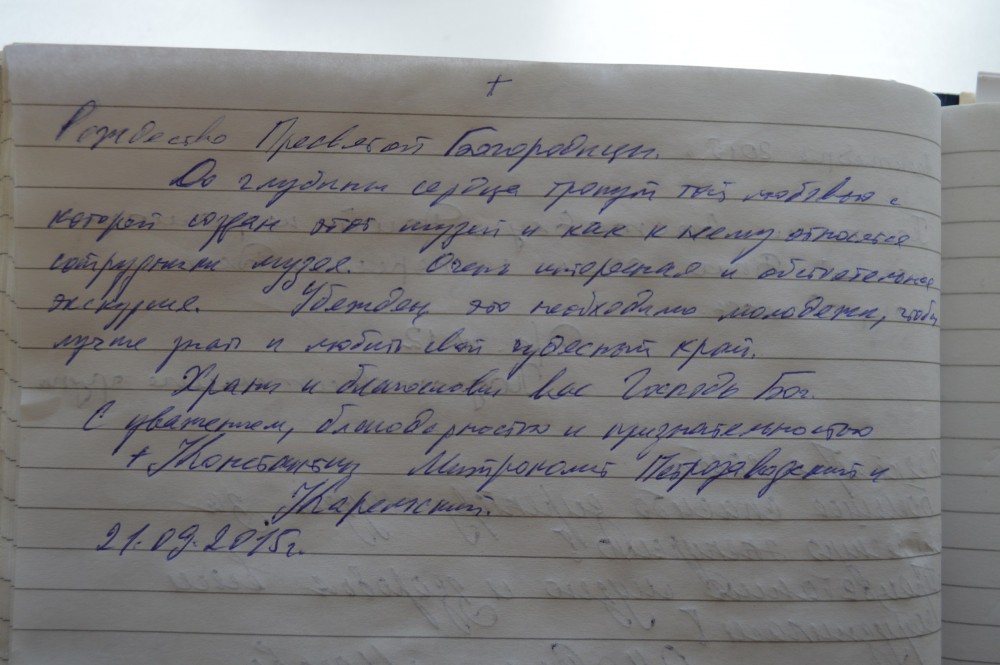 +
Рождество Пресвятой Богородицы.
До глубины сердца тронут той любовью с
которой создан этот музей и как к нему относятся
сотрудники музея. Очень интересная и обстоятельная
экскурсия. Убежден, это необходимо молодежи, чтобы
лучше знать и любить свой чудесный край.
Храни и благослови вас Господь Бог.
С уважением, благодарностью и признательностью
+ Константин Митрополит Петрозаводский и
Карельский.
21.09.2015г.